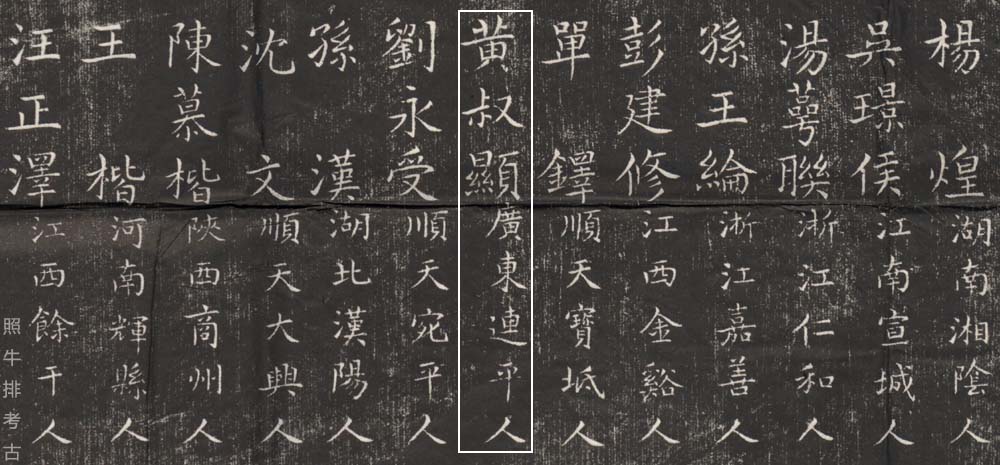 楊煌湖南湘陰人
吳璟侯江南宣城人
湯蕚聯浙江仁和人
孫王綸浙江嘉善人
彭建修江西金谿人
單鐸順天寶坻人
黃叔顯廣東連平人
劉永受順天宛平人
孫漢湖北漢陽人
沈文順天大興人
陳慕楷陝西商州人
王楷河南輝縣人
汪正澤江西餘干人
照牛排考古